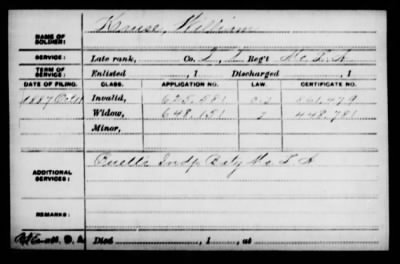 NAME OF SOLDIER: Kruse, William
SERVICE: Late rank, Co. L, 2 Reg't Mo. L. A.
TERM OF SERVICE: Enlisted , 1 Discharged , 1
DATE OF FILING. CLASS. APPLICATION NO. LAW. CERTIFICATE NO.
1887 Oct Invalid, 625,581 861,479
Widow, 648,151 448,781
Minor,
ADDITIONAL SERVICES: Indp Baty Mo L A
REMARKS:
Died , 1 , at